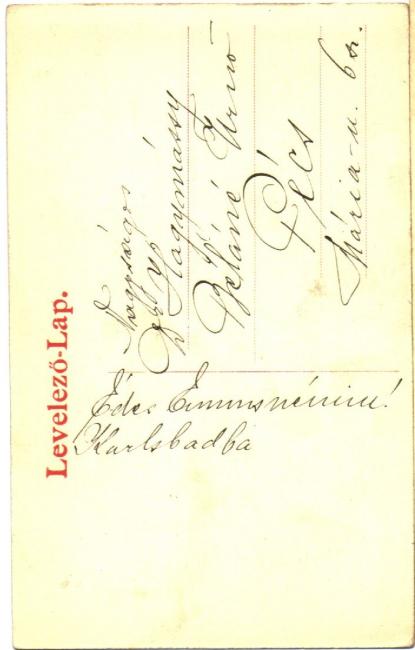 Levelező-Lap.
Nagyságos
Nagymássy
Béláné Úrnő
Pécs
Mária-u. 6 sz.
Édes Emmsnénim!
Karlsbadba